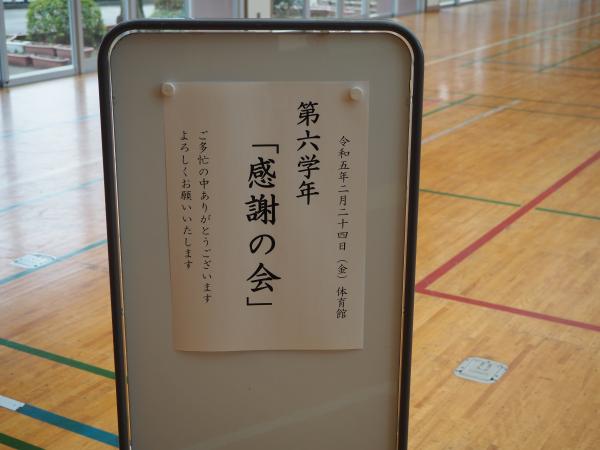 令和五年二月二十四日（金）体育館
第六学年
「感謝の会」
ご多忙の中ありがとうございます
よろしくお願いいたします